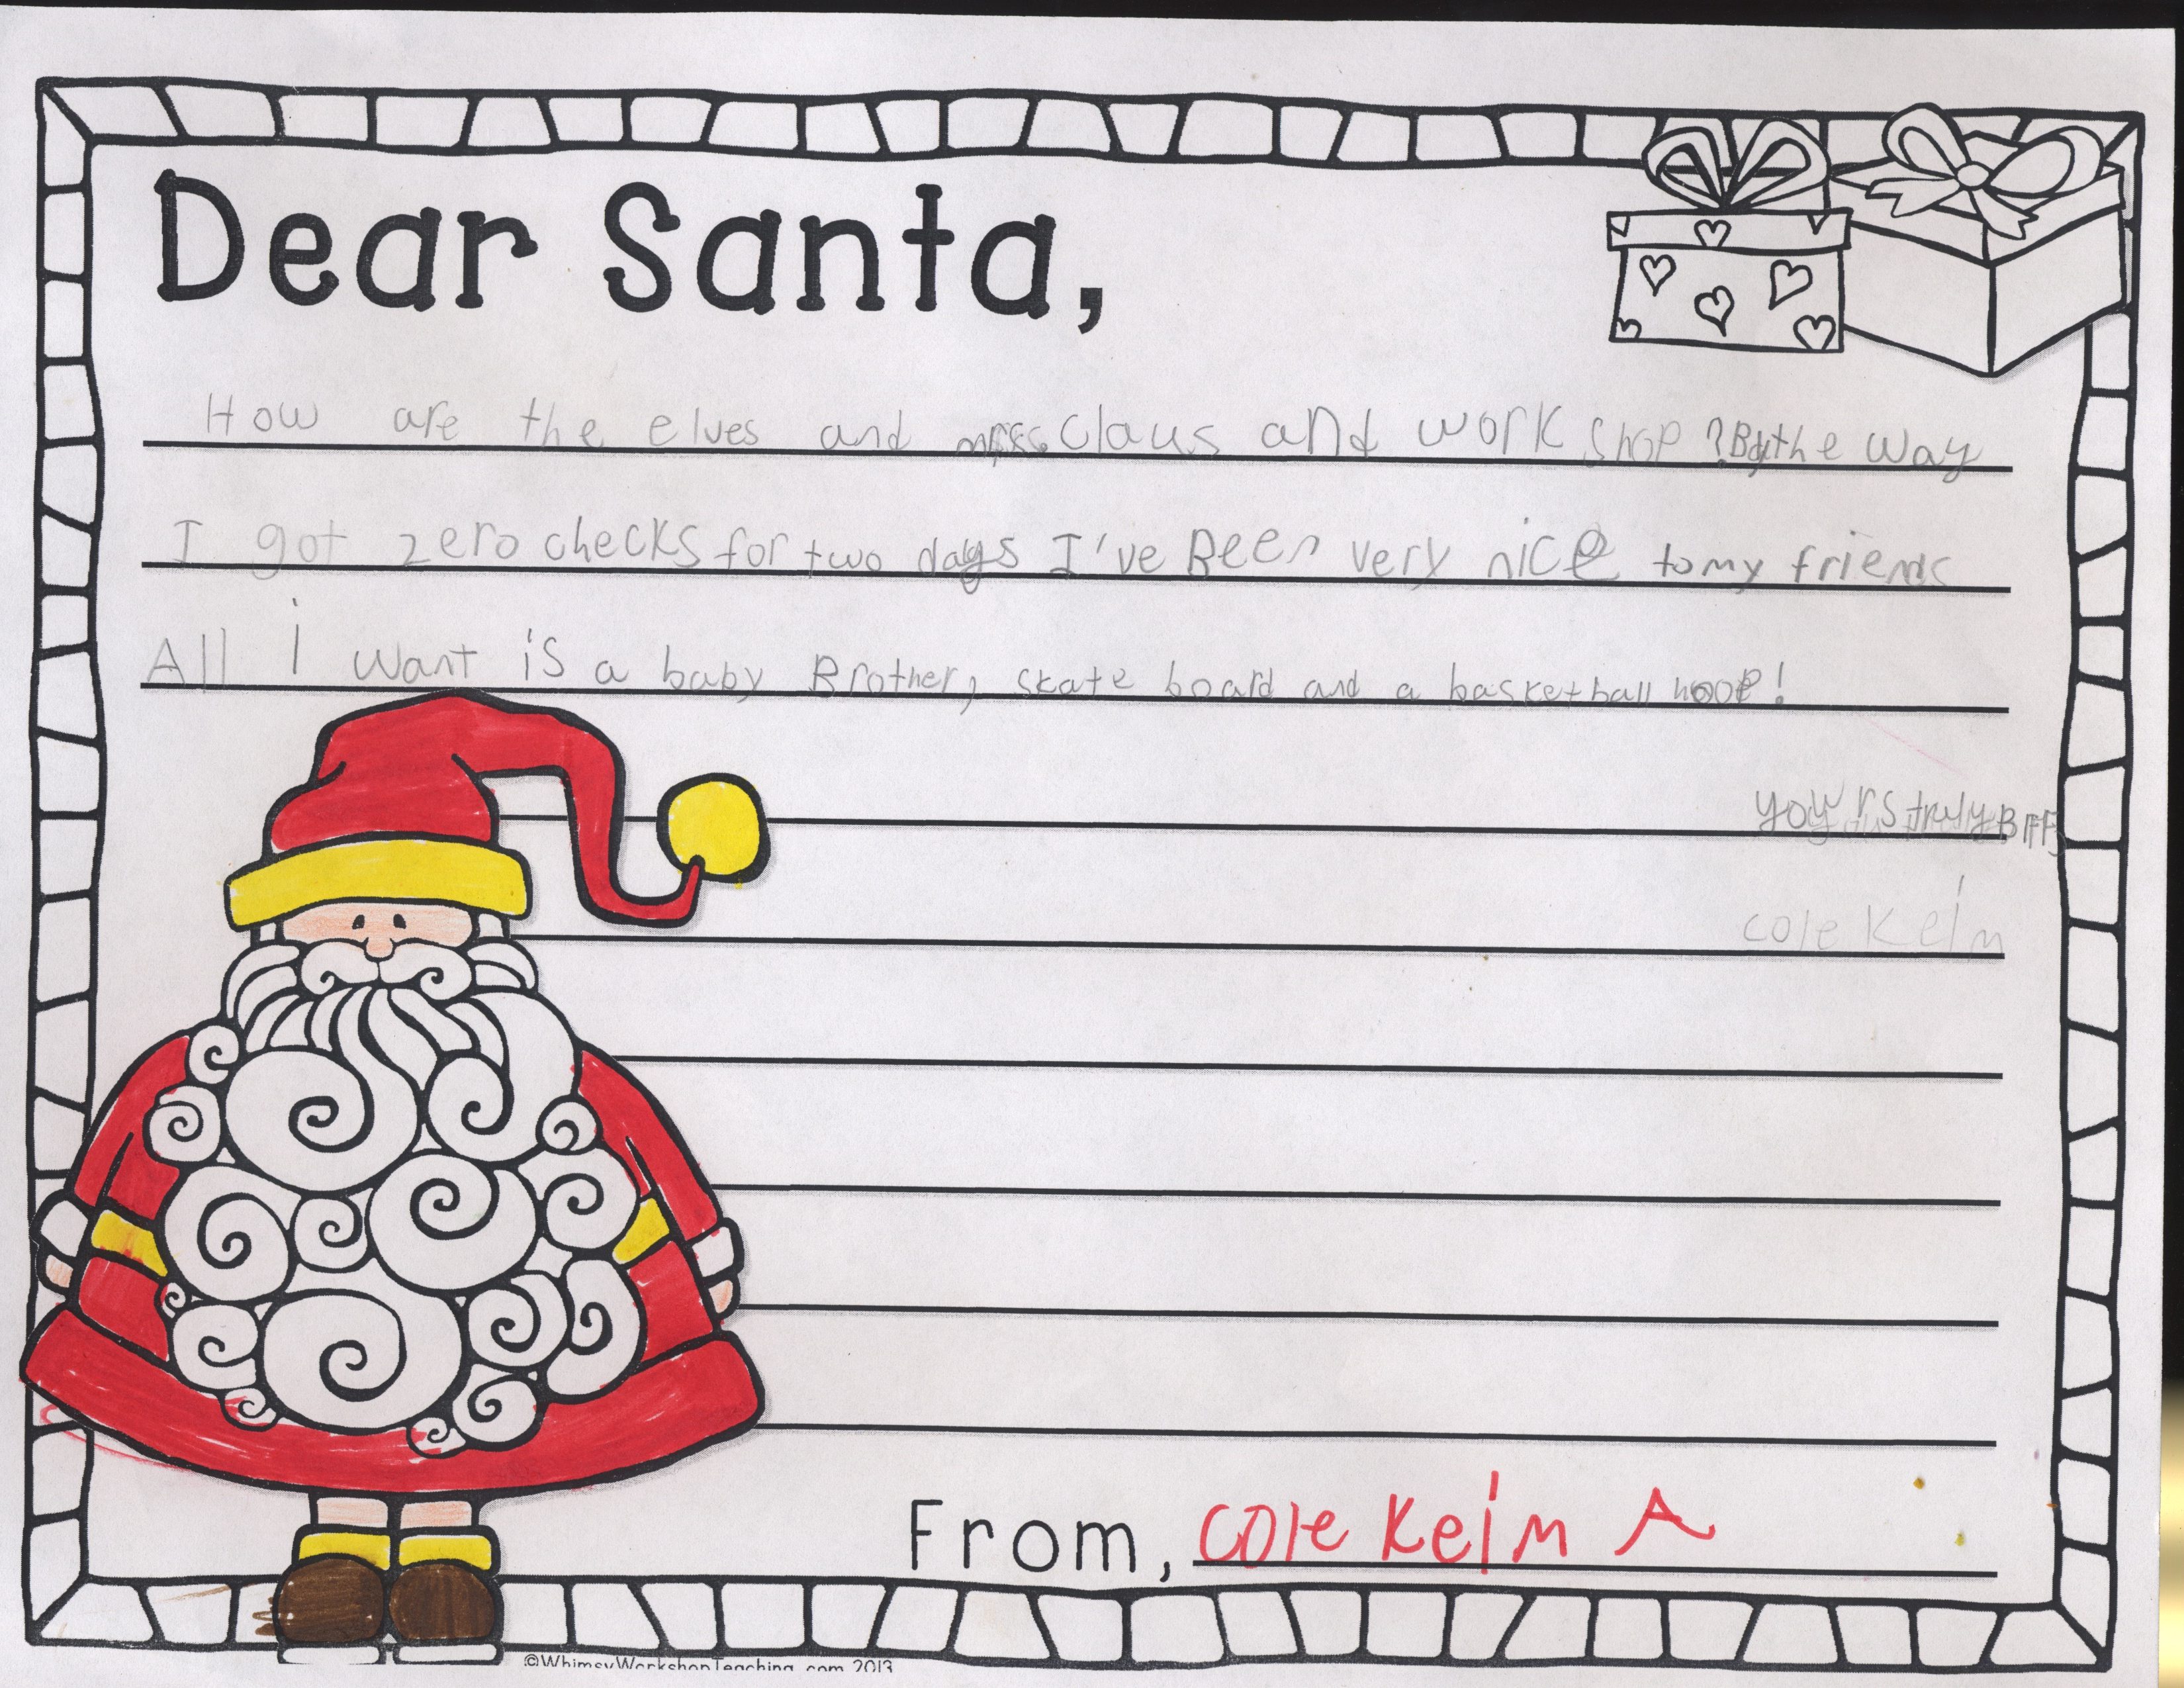 Dear Santa,
How are the elves and mrs. Claus and work shop? By the way
I got zero checks for two days I've Been very nice to my friends
All i want is a baby Brother, skate board and a basketball hoop!
yours truly BFF,
cole Keim
From, cole Keim A
©WhimsyWorkshopTeaching.com 2013